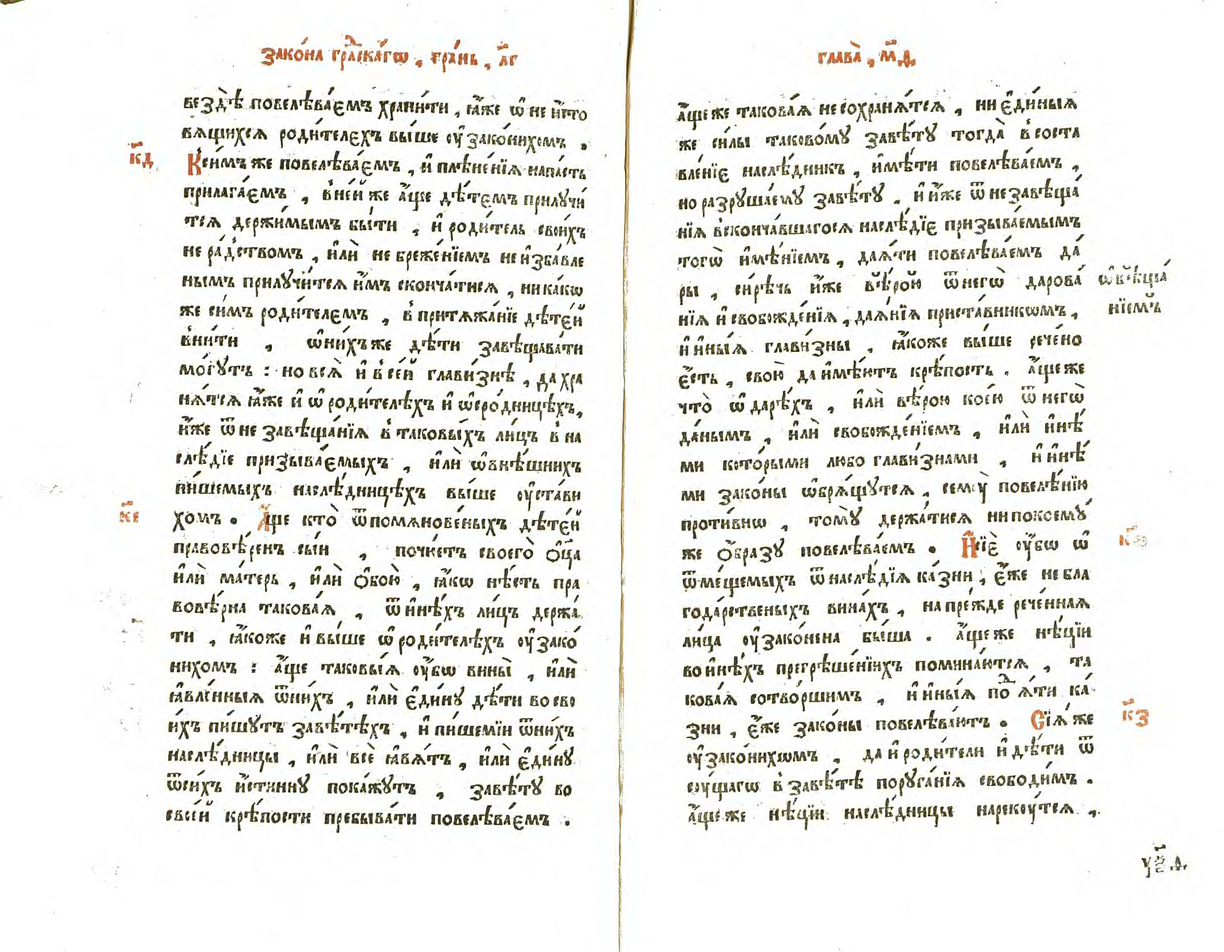 Зако́на гра́дскагѡ, гра́нь, л҃г
вездѣ̀ повелѣва́емъ храни́ти, ꙗ҆́же ѡ҆ не и҆́сто
вѧщихсѧ роди́телехъ вы́ше ᲂу҆зако́нихомъ.
к҃д
Ксимъ же повелѣва́емъ, и҆ плѣне́нїѧ напа́сть
прилага́емъ, в̾не́й же а҆́ще дѣ́темъ прилучи́
тсѧ держи́мымъ бы́ти, и҆ роди́тель свои́хъ
не ра́дствомъ, и҆лѝ не бреже́нїемъ не и҆зба́вле
нымъ прилучи́тсѧ и҆̀мъ сконча́тисѧ, ника́кѡ
же си́мъ роди́телемъ, в̾ притѧжа́нїе дѣте́й
вни́ти, ѡ҆ни́хъ же дѣ́ти завѣщава́ти
мо́гутъ : но всѧ̀ и҆ в̾се́й глави́знѣ, да хра
нѧ́тсѧ ꙗ҆́же и҆ ѡ҆ роди́телѣхъ и҆ ѡ҆сро́дницѣхъ,
и҆̀же ѿ не завѣща́нїѧ в̾ таковы́хъ ли́цъ в̾ на
слѣ́дїе призыва́емыхъ, и҆лѝ ѡ҆внѣ́шнихъ
пи́шемыхъ наслѣ́дницѣхъ вы́ше ᲂу҆ста́ви
к҃е
хомъ. А҆́ще кто̀ ѿ помѧнове́ныхъ дѣте́й
правовѣ́ренъ сы́й, почи́етъ своего̀ ѻ҆ц҃а̀
и҆лѝ ма́терь, и҆лѝ ѻ҆бою̀, ꙗ҆́кѡ нѣ́сть пра
вовѣ́рна такова́ѧ, ѿ и҆нѣ́хъ ли́цъ держа́
ти, ꙗ҆́коже и҆ вы́ше ѡ҆ роди́телехъ ᲂу҆зако́
нихомъ : а҆́ще таковы́ѧ ᲂу҆́бѡ вины̀, и҆лѝ
ꙗ҆вле́нныѧ ѿ ни́хъ, и҆лѝ є҆ди́ну дѣ́ти во сво
и́хъ пи́шутъ завѣ́тѣхъ, и҆ пи́шемїи ѿ ни́хъ
наслѣ́дницы, и҆лѝ всѐ ꙗ҆вѧ́тъ, и҆лѝ є҆ди́ну
ѿ си́хъ и҆́стинну пока́жутъ, завѣ́ту во
свое́й крѣ́пости пребыва́ти повелѣва́емъ.
глава̀, м҃ѳ,
а҆́ще же такова́ѧ не сохранѧ́тсѧ, ни є҆ди́ныѧ
же си́лы таково́му завѣ́ту тогда̀ в̾ соста
вле́нїе наслѣ́дникъ, и҆мѣ́ти повелѣва́емъ,
но разруша́ему завѣ́ту, и҆ и҆̀же ѿ незавѣща́
нїѧ в̾сконча́вшагосѧ наслѣ́дїе призыва́емымъ
того̀ и҆мѣ́нїемъ, даѧ́ти повелѣва́емъ да́
ры, си́рѣчь и҆̀же вѣ́рою ѿ негѡ̀ дарова́
нїѧ и҆ свобожде́нїѧ, даѧ́нїѧ приста́вникѡмъ,
и҆ и҆ны́ѧ глави́зны, ꙗ҆́коже вы́ше рече́но
є҆́сть, свою̀ да и҆мѣ́ютъ крѣ́пость. а҆́ще же
что̀ ѡ҆ дарѣ́хъ, и҆лѝ вѣ́рою ко́ею ѿ негѡ̀
да́нымъ, и҆лѝ свобожде́нїемъ, и҆лѝ и҆нѣ́
ми кото́рыми любо глави́знами, и҆ и҆нѣ́
ми зако́ны ѡ҆брѧ́щутсѧ, сему̀ повелѣ́нїю
проти́внѡ, тому̀ держа́тисѧ ни по ко́ему
же ѻ҆́бразу повелѣва́емъ. И҆ сїѐ ᲂу҆́бѡ ѡ҆
ѿме́щемыхъ ѿ наслѣ́дїѧ ка́зни, є҆́же не бла
года́рственыхъ вина́хъ, на пре́жде рече́нная
ли́ца ᲂу҆зако́нена бы́ша. а҆́ще же нѣ́цїи
во и҆нѣ́хъ прегрѣше́нїихъ помина́ютсѧ, та
кова́ѧ сотво́ршимъ, и҆ и҆ны́ѧ поⷣ ѧ҆́ти ка́
к҃з
зни, є҆́же зако́ны повелѣва́ютъ. Сїѧ́ же
ᲂу҆зако́нихѡмъ, да и҆ роди́тели и҆ дѣ́ти ѿ
су́щагѡ в̾ завѣ́тѣ поруга́нїѧ свободи́мъ.
а҆́ще же нѣ́цїи наслѣ́дницы нареку́тсѧ,